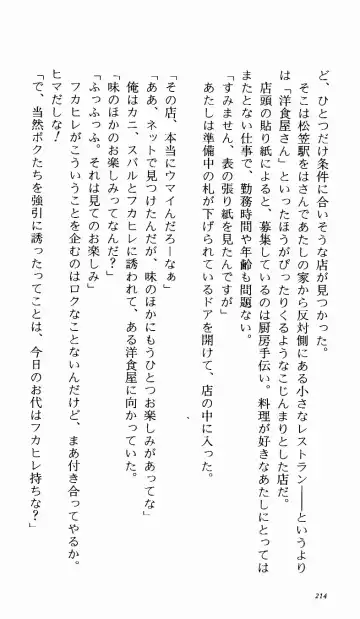 ど、ひとつだけ条件に合いそうな店が見つかった。
そこは松笠駅をはさんであたしの家から反対側にある小さなレストラン――というより
は「洋食屋さん」といったほうがぴったりくるようなこじんまりとした店だ。
店頭の貼り紙によると、募集しているのは厨房手伝い。料理が好きなあたしにとっては
またとない仕事で、勤務時間や年齢も問題ない。
「すみません、表の張り紙を見たんですが」
あたしは準備中の札が下げられているドアを開けて、店の中に入った。
「その店、本当にウマイんだろーなぁ」
「ああ、ネットで見つけたんだが、味のほかにもうひとつお楽しみがあってな」
俺はカニ、スバルとフカヒレに誘われて、ある洋食屋に向かっていた。
「味のほかのお楽しみってなんだ？」
「ふっふっふ。それは見てのお楽しみ」
フカヒレがこういうことを企むのはロクなことないんだけど、まあ付き合ってやるか。
ヒマだしな！
「で、当然ボクたちを強引に誘ったってことは、今日のお代はフカヒレ持ちな？」
214